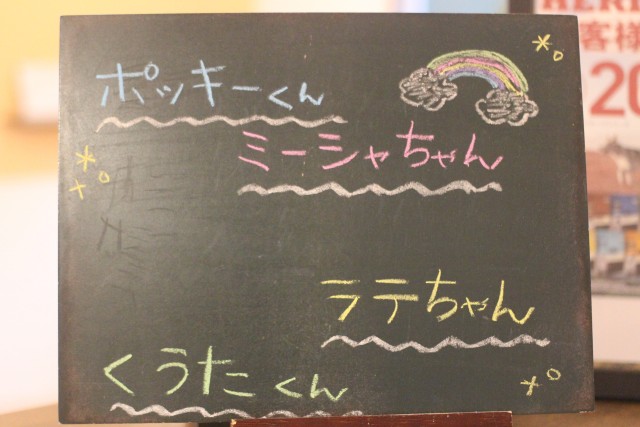 ポッキーくん
ミーシャちゃん
ラテちゃん
くうたくん
客様
20